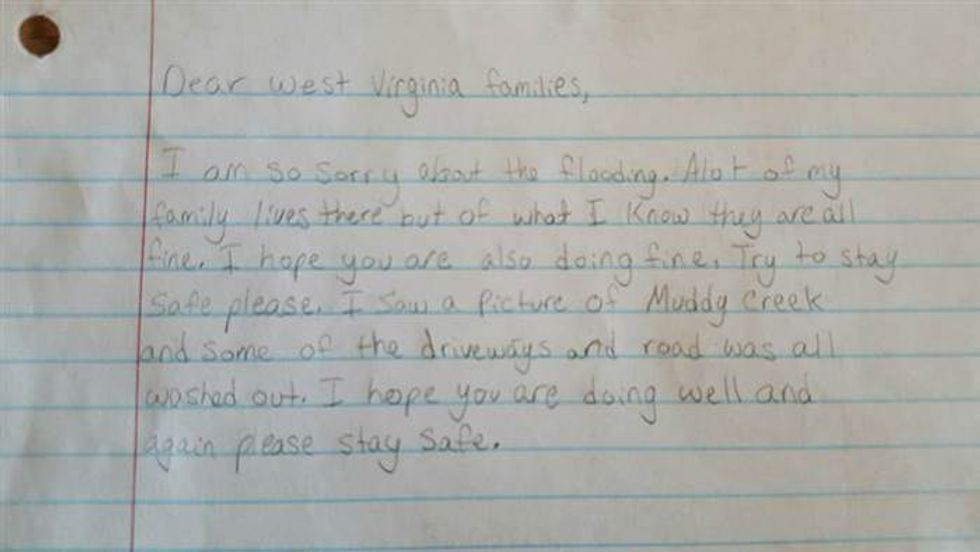 Dear West Virginia families,
I am so sorry about the flooding. Alot of my
family lives there but of what I know they are all
fine. I hope you are also doing fine. Try to stay
safe please. I saw a picture of Muddy Creek
and some of the driveways and road was all
washed out. I hope you are doing well and
again please stay safe.